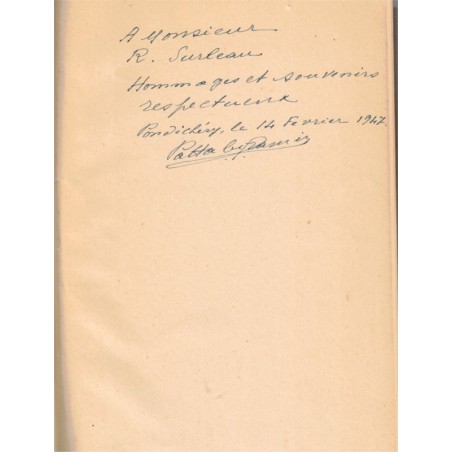 A Monsieur
R. Surleau
Hommages et souvenirs
respectueux
Pondichéry, le 14 Fevrier 1947.